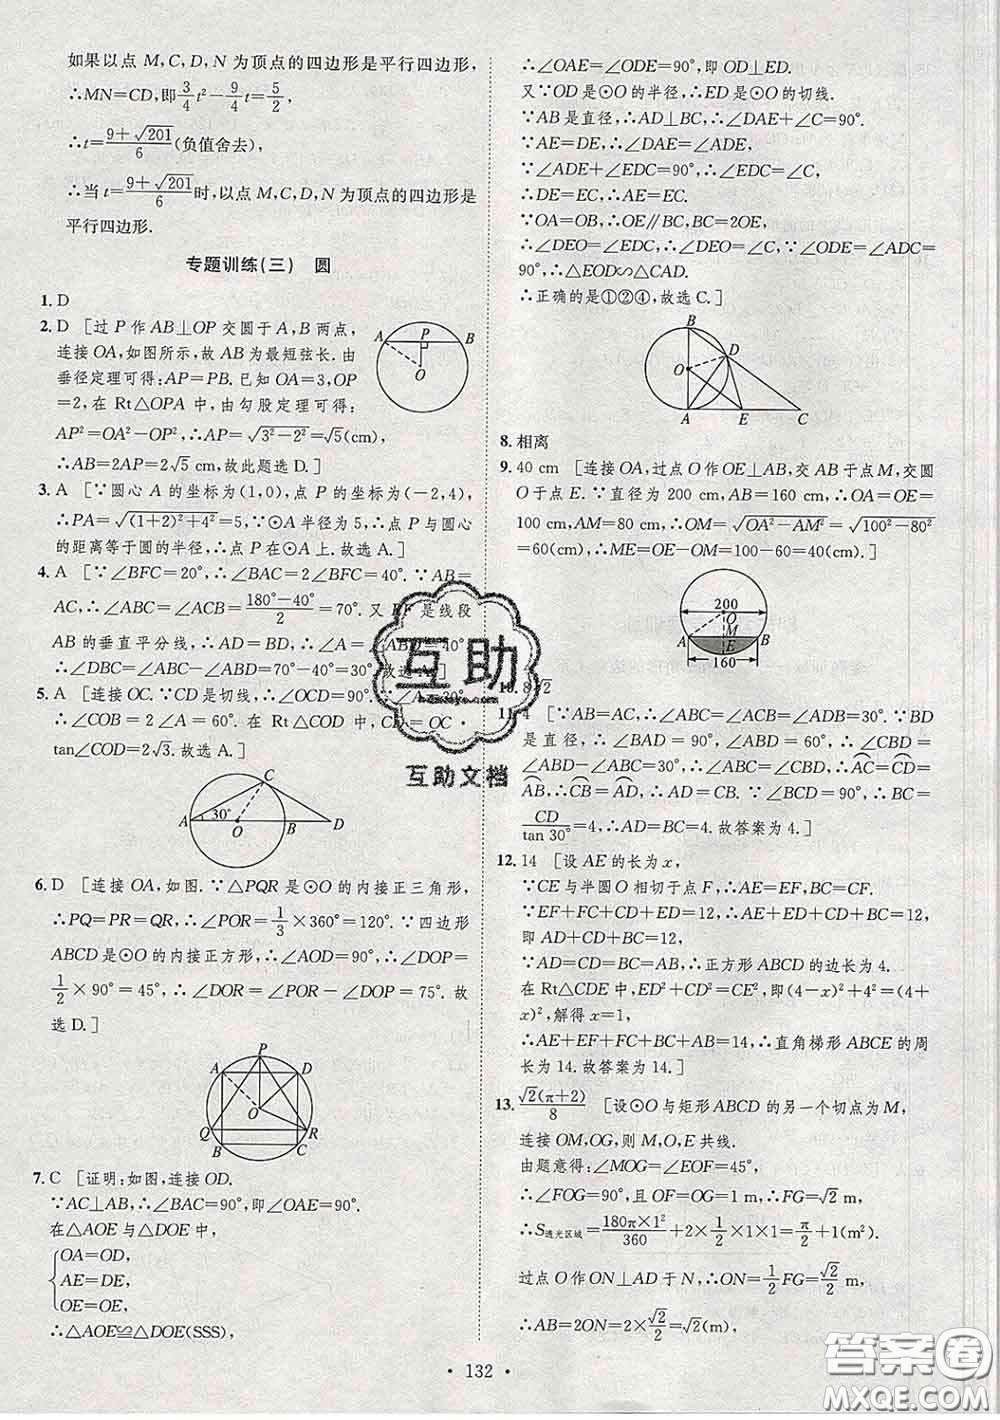 如果以点 M,C,D,N 为顶点的四边形是平行四边形,
∴MN=CD,即3/4t²-9/4t=5/2,
∴t=(9+√201)/6(负值舍去),
∴当 t=(9+√201)/6时,以点 M,C,D,N 为顶点的四边形是
平行四边形.
专题训练(三) 圆
1. D
2. D [过 P 作 AB⊥OP 交圆于 A,B 两点,
连接 OA,如图所示,故 AB 为最短弦长.由
垂径定理可得:AP=PB.已知 OA=3,OP
=2,在 Rt△OPA 中,由勾股定理可得:
AP²=OA²-OP²,∴AP=√(3²-2²)=√5(cm)
∴AB=2AP=2√5 cm,故此题选 D.]
A P B O
3. A [∵圆心 A 的坐标为(1,0),点 P 的坐标为(-2,4),
∴PA=√((1+2)²+4²)=5,∵⊙A 半径为5,∴点 P 与圆心
的距离等于圆的半径,∴点 P 在⊙A 上.故选 A.]
4. A [∵∠BFC=20°,∴∠BAC=2∠BFC=40°.∵AB=
AC,∴∠ABC=∠ACB=(180°-40°)/2=70°.又 EF 是线段
AB 的垂直平分线,∴AD=BD,∴∠A=∠ABD=40°
∴∠DBC=∠ABC-∠ABD=70°-40°=30°.故选 A.]
5. A [连接 OC.∵CD 是切线,∴∠OCD=90°.∵∠A=30°,
∴∠COB=2∠A=60°.在 Rt△OCD 中,CD=OC·
tan∠COD=2√3.故选 A.]
A 30° O B C D
6. D [连接 OA,如图.∵△PQR 是⊙O 的内接正三角形,
∴PQ=PR=QR,∴∠POR=1/3×360°=120°.∵四边形
ABCD 是⊙O 的内接正方形,∴∠AOD=90°,∴∠DOP=
1/2×90°=45°,∴∠DOR=∠POR-∠DOP=75°.故
选 D.]
P A D O Q R B C
7. C [证明:如图,连接 OD.
∵AC⊥AB,∴∠BAC=90°,即∠OAE=90°.
在△AOE 与△DOE 中,
OA=OD,
AE=DE,
OE=OE,
∴△AOE≌△DOE(SSS),
∴∠OAE=∠ODE=90°,即 OD⊥ED.
又∵OD 是⊙O 的半径,∴ED 是⊙O 的切线.
∵AB 是直径,∴AD⊥BC,∴∠DAE+∠C=90°.
∵AE=DE,∴∠DAE=∠ADE,
∵∠ADE+∠EDC=90°,∴∠EDC=∠C,
∴DE=EC,∴AE=EC.
∵OA=OB,∴OE∥BC,BC=2OE,
∴∠DEO=∠EDC,∴∠DEO=∠C,∵∠ODE=∠ADC=
90°,∴△EOD∽△CAD.
∴正确的是①②④,故选 C.]
B D O A E C
8. 相离
9. 40 cm [连接 OA,过点 O 作 OE⊥AB,交 AB 于点 M,交圆
O 于点 E.∵直径为 200 cm,AB=160 cm,∴OA=OE=
100 cm,AM=80 cm,∴OM=√(OA²-AM²)=√(100²-80²)
=60(cm),∴ME=OE-OM=100-60=40(cm).]
200 O M A B E 160
10. 8√2
11. 4 [∵AB=AC,∴∠ABC=∠ACB=∠ADB=30°.∵BD
是直径,∴∠BAD=90°,∠ABD=60°,∴∠CBD=
∠ABD-∠ABC=30°,∴∠ABC=∠CBD,∴AC=CD=
AB,∴CB=AD,∴AD=CB.∵∠BCD=90°,∴BC=
CD/tan 30°=4,∴AD=BC=4.故答案为 4.]
12. 14 [设 AE 的长为 x,
∵CE 与半圆 O 相切于点 F,∴AE=EF,BC=CF.
∵EF+FC+CD+ED=12,∴AE+ED+CD+BC=12,
即 AD+CD+BC=12,
∵AD=CD=BC=AB,∴正方形 ABCD 的边长为 4.
在 Rt△CDE 中,ED²+CD²=CE²,即(4-x)²+4²=(4+
x)²,解得 x=1,
∴AE+EF+FC+BC+AB=14,∴直角梯形 ABCE 的周
长为 14.故答案为 14.]
13. √2(π+2)/8 [设⊙O 与矩形 ABCD 的另一个切点为 M,
连接 OM,OG,则 M,O,E 共线.
由题意得:∠MOG=∠EOF=45°,
∴∠FOG=90°,且 OF=OG=1 m,∴FG=√2 m,
∴S透光区域=180π×1²/360+2×1/2×1×1=π/2+1(m²).
过点 O 作 ON⊥AD 于 N,∴ON=1/2FG=√2/2 m,
∴AB=2ON=2×√2/2=√2(m),
· 132 ·
互助
互助文档
答案圈
MXQE.COM